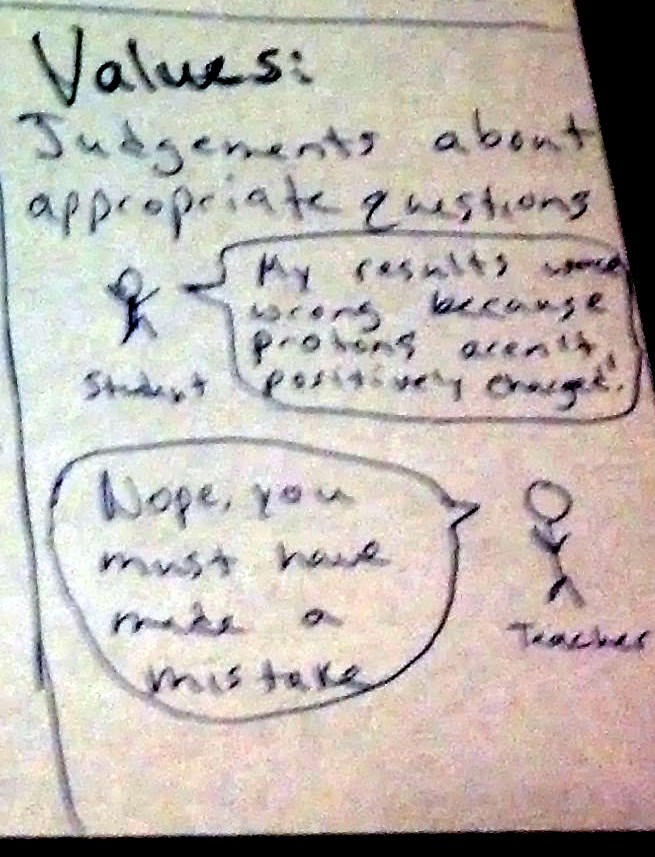 Values:
Judgements about
appropriate questions
My results were
wrong because
protons aren't
positively charged!
Student
Nope, you
must have
made a
mistake
Teacher